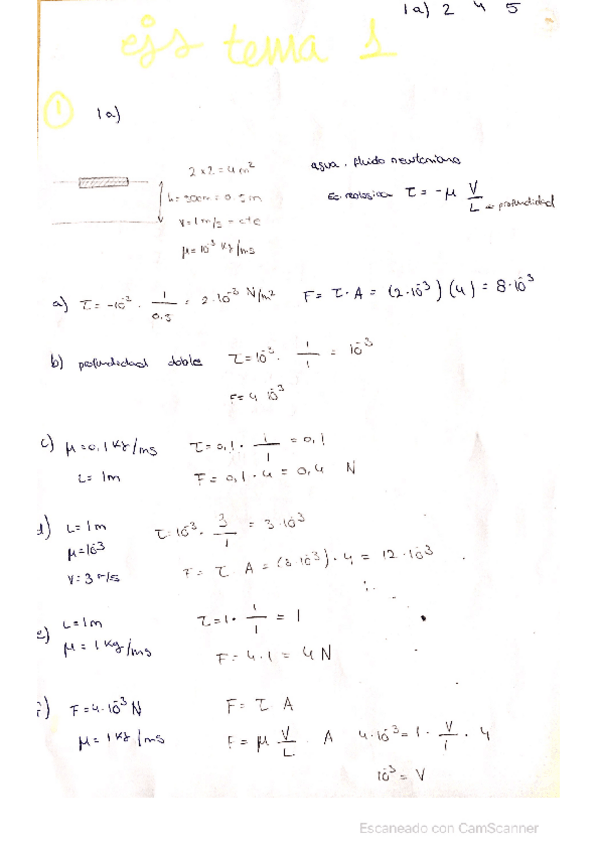 1a) 2 4 5
ejs tema 1
① 1a)
2 x 2 = 4 m²
h = 50cm = 0.5m
v = 1 m/s = cte
μ = 10⁻³ Kg/ms
agua. fluido newtoniano
Ec. reologica τ = -μ V/L → profundidad
a) τ = -10⁻³ · 1/0.5 = 2·10⁻³ N/m² F = τ·A = (2·10⁻³)(4) = 8·10⁻³
b) profundidad doble τ = 10⁻³ · 1/1 = 10⁻³
F = 4 10⁻³
c) μ = 0,1 Kg/ms τ = 0,1 · 1/1 = 0,1
L = 1m F = 0,1 · 4 = 0,4 N
d) L = 1m τ = 10⁻³ · 3/1 = 3·10⁻³
μ = 10⁻³
v = 3 m/s F = τ A = (3·10⁻³)·4 = 12·10⁻³
e) L = 1m τ = 1 · 1/1 = 1
μ = 1 Kg/ms F = 4·1 = 4N
f) F = 4·10⁻³ N F = τ A
μ = 1 Kg/ms F = μ V/L · A 4·10⁻³ = 1 · V/1 · 4
10⁻³ = V
Escaneado con CamScanner